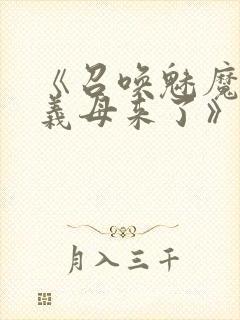 《召唤魅魔
義母来了》
月入三千